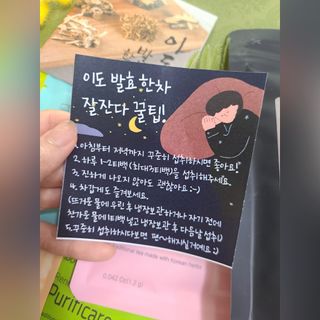 이도 발효한차
잘잔다 꿀팁!
1. 아침부터 저녁까지 꾸준히 섭취하시면 좋아요!
2. 하루 1-2티백 (최대3티백)을 섭취해주세요.
3. 진하게 나오지 않아도 괜찮아요 :-)
4. 차갑게도 즐겨보세요.
(뜨거운 물에 우린 후 냉장보관하거나 자기 전에
찬가운 물에 1티백 넣고 냉장보관 후 다음날 섭취)
5. 꾸준히 섭취하시다보면 편~해지실거예요 :)
tea made with Korean herbs
0.042 oz(1.2 g)
Purificare